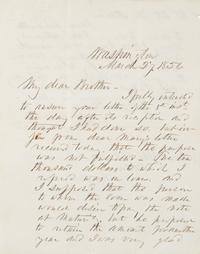 Washington
March 27, 1856
My dear Brother—
I fully intended
to answer your letter of the 3d inst.
the day after its reception and
thought I had done so, but in-
fer from dear Mary's letter
received today that the purpose
was not fulfilled. The ten
thousand dollars to which I
refered was on loan, and
I supposed that the person
to whom the loan was made
would deliver upon the note
at Maturity, but he proposes
to retain the amount for another
year and I was very glad